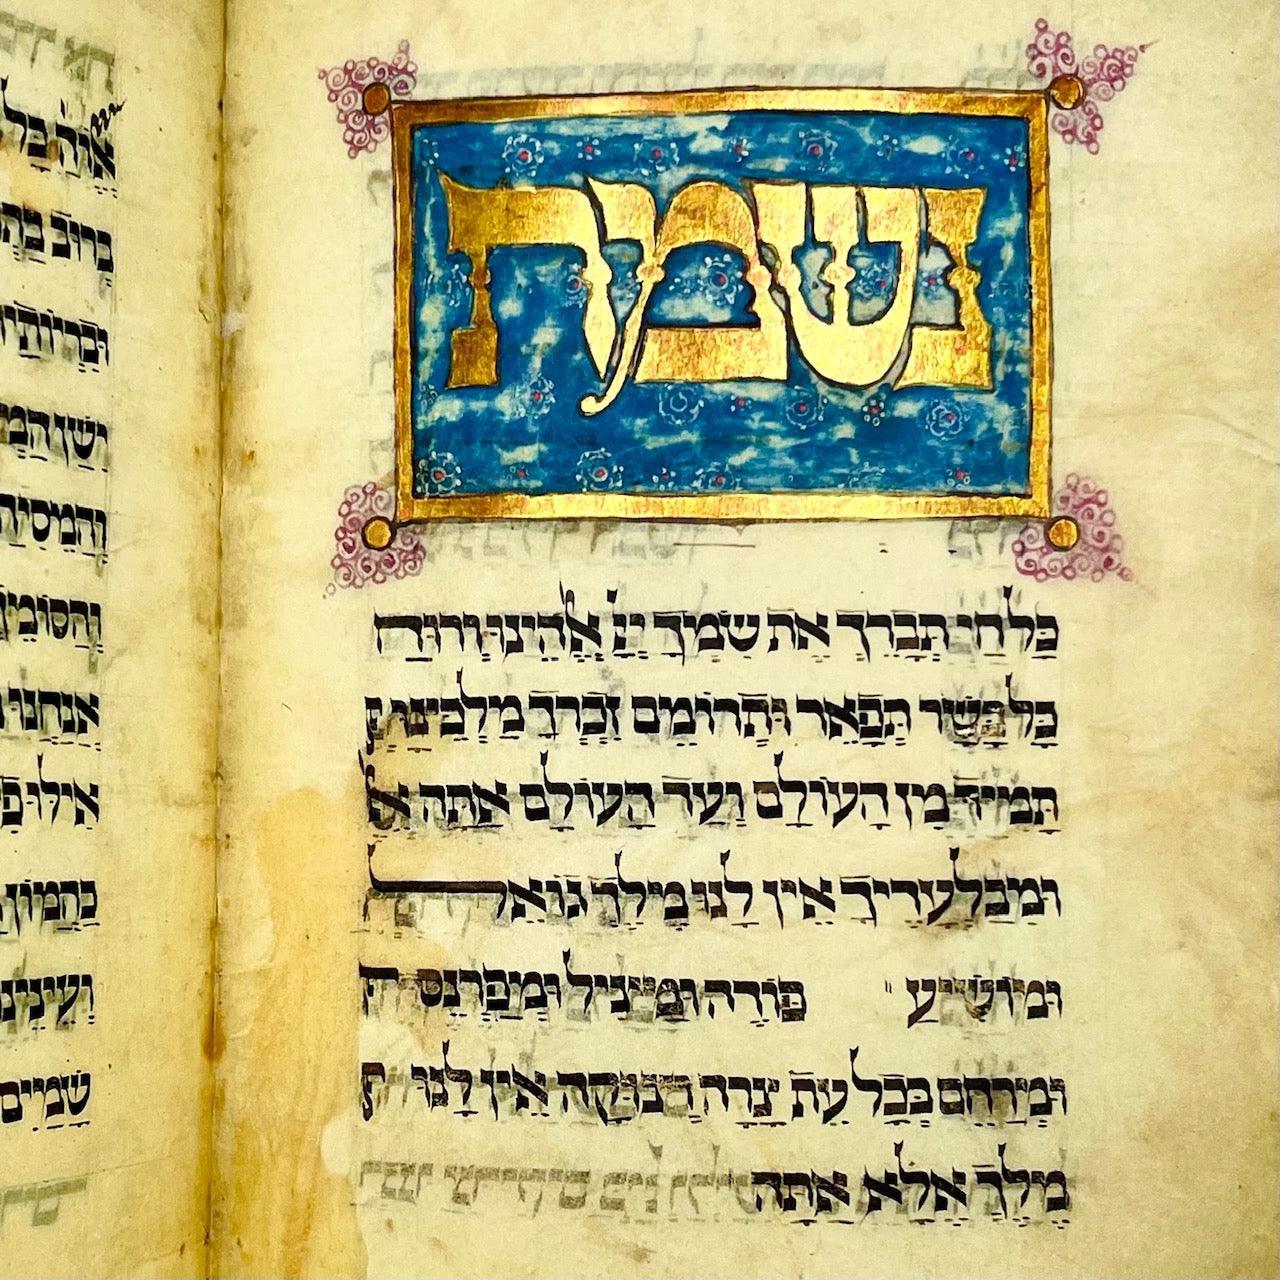 נשמת
כל חי תברך את שמך יי אלהינו ורוח
כל בשר תפאר ותרומם זכרך מלכינו
תמיד מן העולם ועד העולם אתה אל
ומבלעדיך אין לנו מלך גואל
ומושיע פודה ומציל ומפרנס
ומרחם בכל עת צרה וצוקה אין לנו
מלך אלא אתה
ברוב
אנחנו
אילו
כהמון
שמים